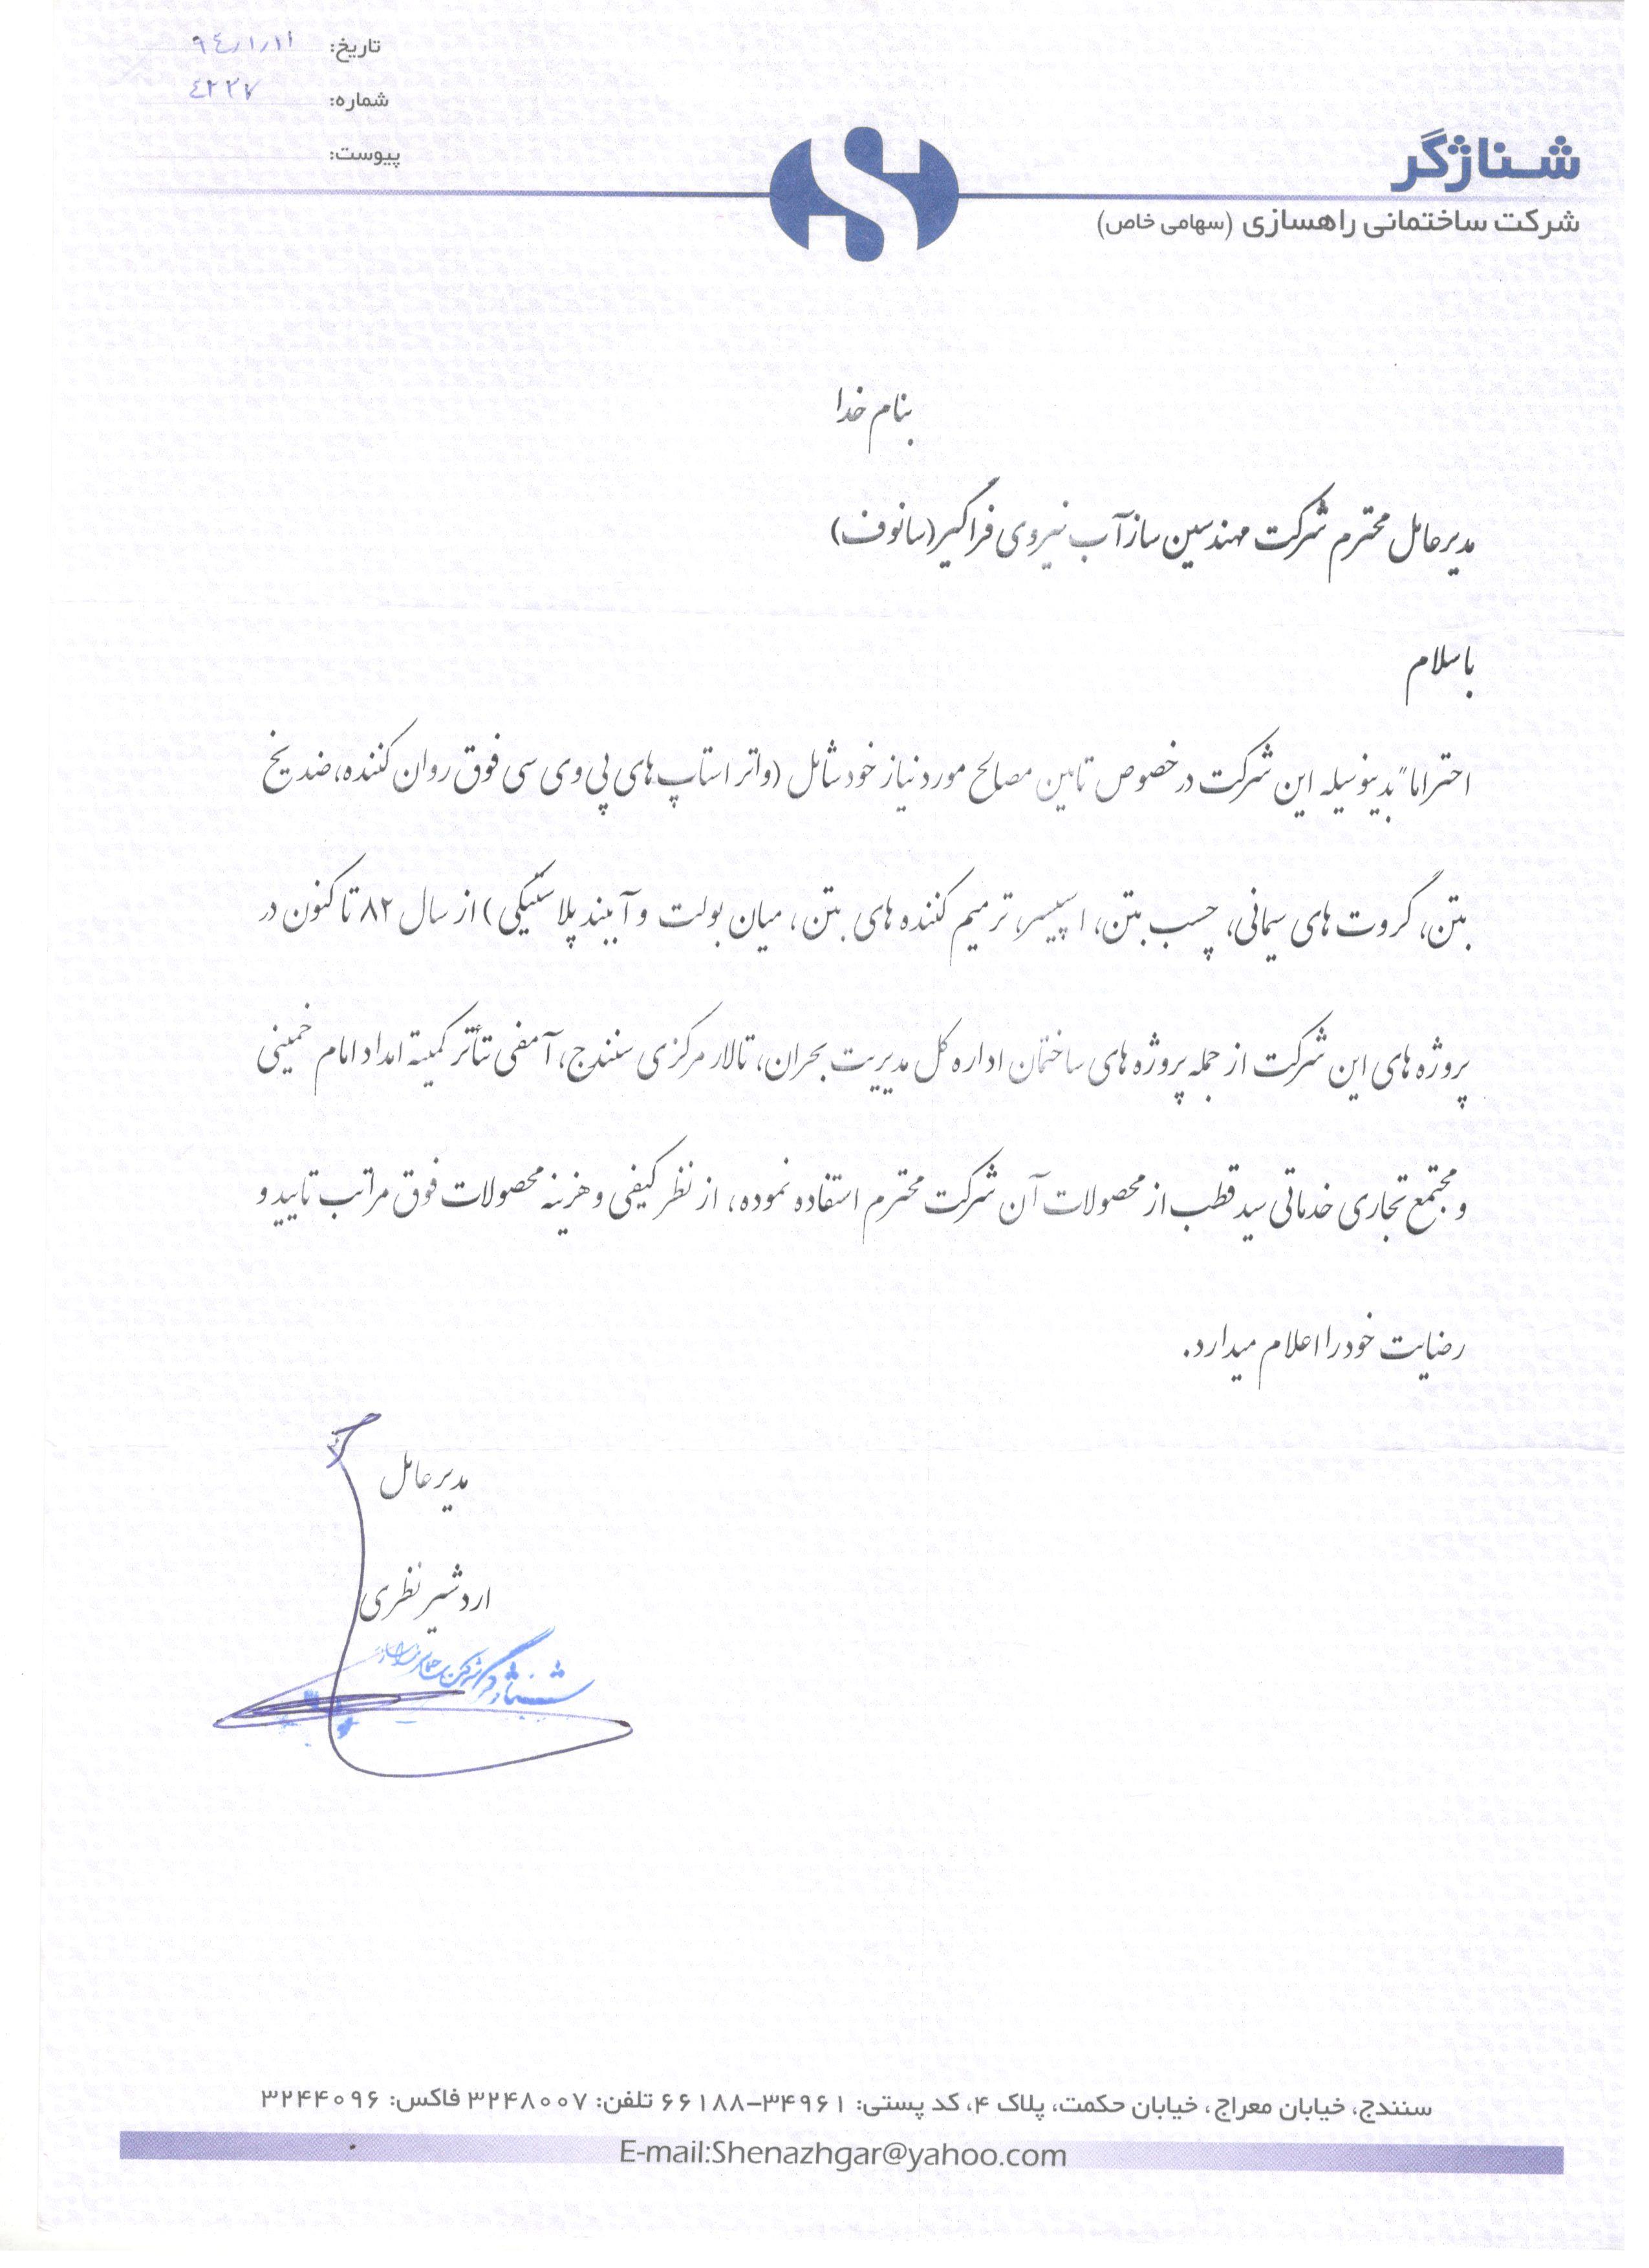 تاریخ: ۹۴/۱/۱۱
شماره: ۴۲۲۷
پیوست:
شناژگر
شرکت ساختمانی راهسازی (سهامی خاص)
بنام خدا
مدیرعامل محترم شرکت مهندسین سازآب نیروی فراگیر(سانوف)
باسلام
احتراما" بدینوسیله این شرکت در خصوص تامین مصالح مورد نیاز خود شامل (واتر استاپ های پی وی سی فوق روان کننده، ضد یخ
بتن، گروت های سیمانی، چسب بتن، اسپیسر، ترمیم کننده های بتن، میان بولت و آببند پلاستیکی) از سال ۸۲ تا کنون در
پروژه های این شرکت از جمله پروژه های ساختمان اداره کل مدیریت بحران، تالار مرکزی سنندج، آمفی تئاتر کمیته امداد امام خمینی
و مجتمع تجاری خدماتی سید قطب از محصولات آن شرکت محترم استفاده نموده، از نظر کیفی و هزینه محصولات فوق مراتب تایید و
رضایت خود را اعلام میدارد.
مدیر عامل
اردشیر نظری
سنندج، خیابان معراج، خیابان حکمت، پلاک ۴، کد پستی: ۳۴۹۶۱–۶۶۱۸۸ تلفن: ۳۲۴۸۰۰۷ فاکس: ۳۲۴۴۰۹۶
E-mail:Shenazhgar@yahoo.com